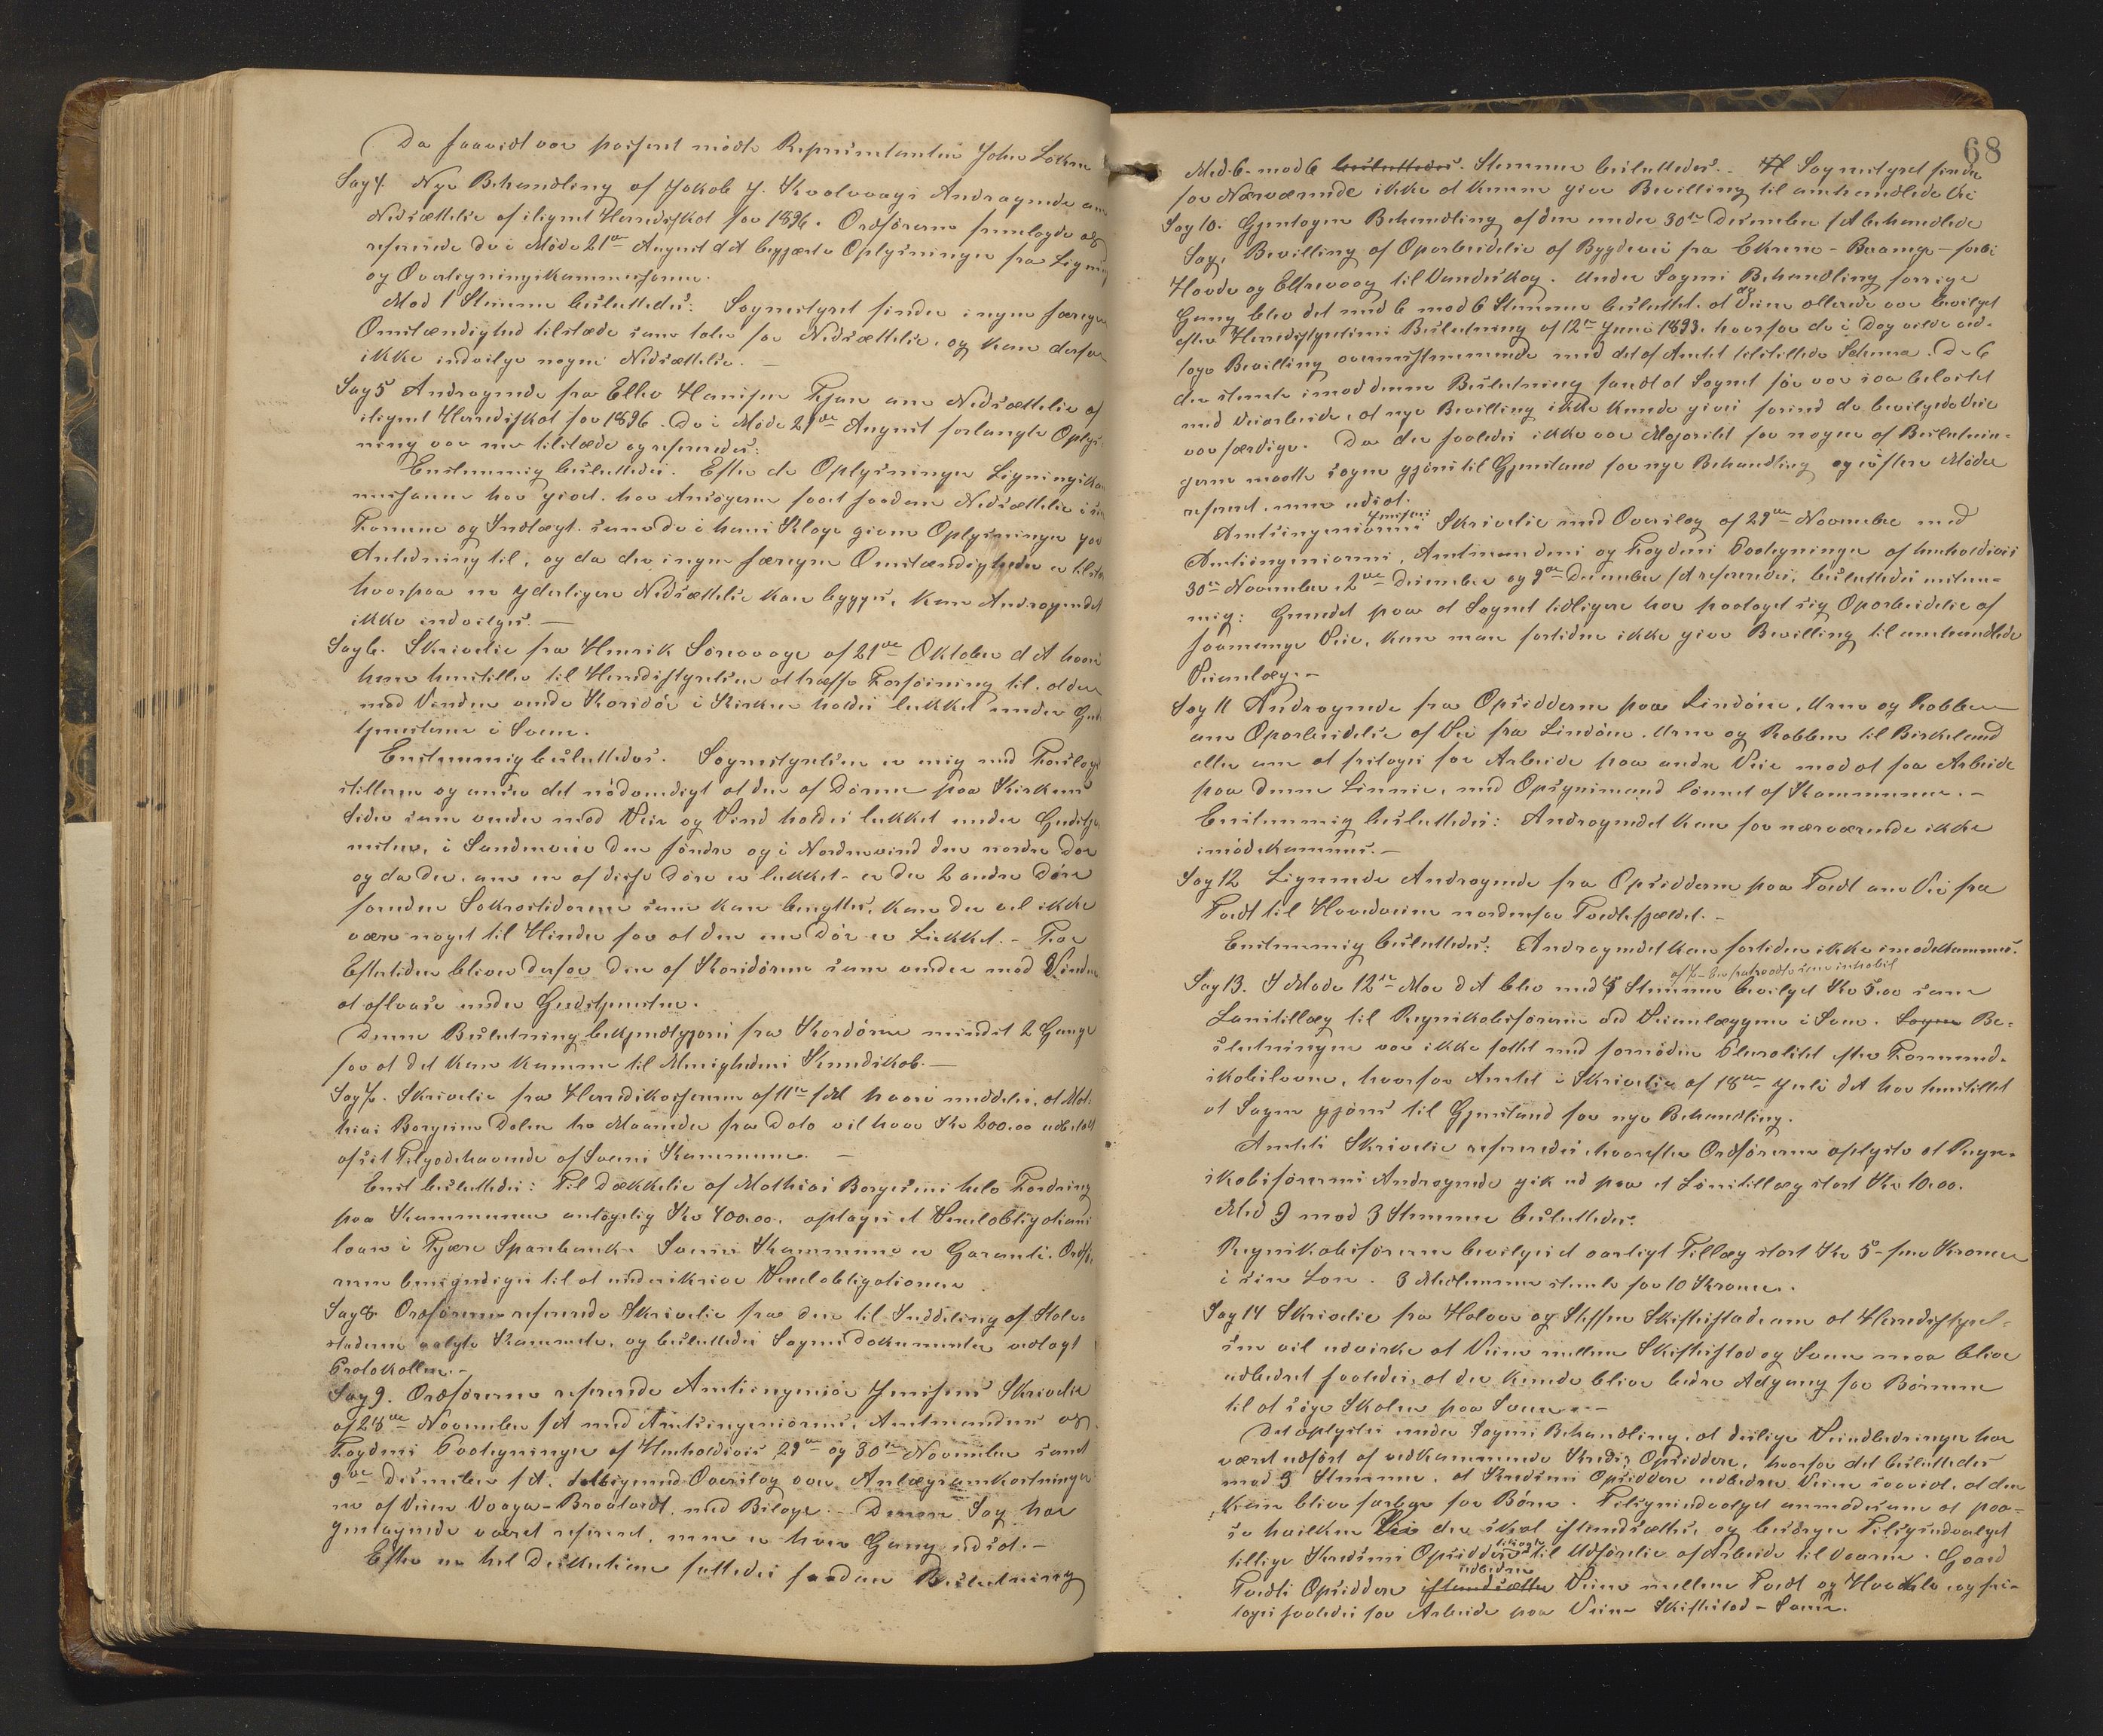 Da saavidt var passeret mødte Repræsentanten John Lokøen
Sag 4. Nye Behandling af Jakob J. Kvalvaags Andragende om
Nedsættelse af ilignet Herredsskat for 1896. Ordføreren fremlagde og
refererede de i Møde 21de August d A begjærte Oplysninger fra Lignings
og Overligningskommissionen.
Mod 1 Stemme besluttedes: Sognestyret finder ingen særegen
Omstændighed tilstæde som taler for Nedsættelse, og kan derfor
ikke indvilge nogen Nedsættelse. —
Sag 5 Andragende fra Ellev Hansen Tjøn om Nedsættelse af
ilignet Herredsskat for 1896. De i Møde 21de August forlangte Oplys-
ning var nu tilstæde og refereredes:
Enstemmig besluttedes. Efter de Oplysninger Ligningskom
missionen har givet, har Ansøgeren faaet saadan Nedsættelse i sin
Formue og Indtægt som de i hans Klage givne Oplysninger gav
Anledning til, og da der ingen særegen Omstændigheder er tilstæ
hvorpaa en yderligere Nedsættelse kan bygges, kan Andragendet
ikke indvilges. —
Sag 6. Skrivelse fra Henrik Sørevaage af 21de Oktober d A hvori
han henstiller til Herredsstyrelsen at træffe Forføining til, at den
mod Vinden vendte Kordør i Kirken holdes lukket under Gud
tjenesten i Sveen.
Enstemmig besluttedes. Sognestyrelsen er enig med Forslags
stilleren og anser det nødvendigt at den af Dørene paa Kirkens
Sider som vender mod Veir og Vind holdes lukket under Gudstje
nesten, i Søndenveir den søndre og i Nordenvind den nordre Dør
og da der, om en af disse Døre er lukket – er der 2 andre Døre
foruden Sakristidøren som kan benyttes, kan der vel ikke
være noget til Hinder for at den ene Dør er Lukket. – For
Eftertiden bliver derfor den af Kordørene som vender mod Vinden
at aflaase under Gudstjenesten.
Denne Beslutning bekjendtgjøres fra Kordøren mindst 2 Gange
for at det kan komme til Menighedens Kundskab. —
Sag 7. Skrivelse fra Herredskassereren af 11te f M hvori meddeles, at Mat-
hias Borgesen Dalen ha Maaneder fra Dato vil have Kr 200.00 udbetalt
af sit Tilgodehavende af Sveens Kommune. —
Enst besluttedes: Til Dækkelse af Mathias Borgesens hele Fordring
paa Kommunen antagelig Kr 400.00, optages et Vexelobligations
laan i Fjære Sparebank. Sveens Kommune er Garanti. Ordfø
reren bemyndiges til at underskrive Vexelobligationen
Sag 8. Ordføreren refererede Skrivelse fra den til Inddeling af Stole-
staderne valgte Komite, og besluttedes Sagens Dokumenter vedlagt
Protokollen. –
Sag 9. Ordføreren refererede Amtsingeniør Jensens Skrivelse
af 28de November f A med Amtsingeniørens, Amtmandens og
Fogdens Paategninger af Henholdsvis 29de og 30te November samt
9de Desember f A. ledsagende Overslag over Anlægsomkostninger
ne af Veien Vaage – Braatveit med Bilage. – Denne Sag har
gentagende været refereret, men er hver Gang udsat. –
Efter en hel Diskution fattedes saadan Beslutning
68
Med 6 mod 6 besluttedes. Stemmer besluttedes. – Sognestyret finder
for Nærværende ikke at kunne give Bevilling til omhandlede Vei
Sag 10. Gjentagen Behandling af den under 30te Desember f A behandlede
Sag, Bevilling af Oparbeidelse af Bygdevei fra Ekrene – Buange – forbi
Hovde og Eltrevaag til Vandeskog. Under Sagens Behandling forrige
Gang blev det med 6 mod 6 Stemmer besluttet, at da Veien allerede var bevilget
efter Herredsstyrelsens Beslutning af 12te Juni 1893, hvorfor de i Dag vilde ved-
tage Bevilling overensstemmende med det af Amtet tilstillede Schema. De 6
der stemte imod denne Beslutning fandt at Sognet før var saa belastet
med Veiarbeide, at nye Bevilling ikke kunde gives førend de bevilgede Veie
var færdige. Da der saaledes ikke var Majoritet for nogen af Beslutnin-
gerne maatte sagen gjøres til Gjenstand for nye Behandling og er i flere Møder
referert, men udsat.
Amtsingeniør Jensens Skrivelse med Overslag af 29de November med
Amtsingeniørens, Amtmandens og Fogdens Paategninger af henholdsvis
30te November, 2den Desember og 9de Desember f A refereredes, besluttedes enstem-
mig: Grundet paa at Sognet tidligere har paataget sig Oparbeidelse af
saamange Veie, kan man fortiden ikke give Bevilling til omhandlede
Veianlæg. –
Sag 11 Andragende fra Opsidderne paa Lindøen, Urne og Robben
om Oparbeidelse af Vei fra Lindøen, Urne og Robben til Birkeland
eller om at fritages for Arbeide paa andre Veie mod at faa Arbeide
paa denne Linnie, med Opsynsmand lønnet af Kommunen. –
Enstemmig besluttedes: Andragendet kan for nærværende ikke
imødekommes. –
Sag 12 Lignende Andragende fra Opsidderne paa Tvedt om Vei fra
Tvedt til Hovedveien nordenfor Tvedtefjeldet. –
Enstemmig besluttedes: Andragendet kan fortiden ikke imødekommes.
Sag 13. I Møde 12te Mai d A blev med 5 Stemmer bevilget Kr 5.00 som
Lønstillæg til Regnskabsføreren ved Veianlæggene i Sveen. Sagen Be-
slutningen var ikke fattet med fornøden Pluralitet efter Formand-
skabsloven, hvorfor Amtet i Skrivelse af 18de Juli d A har henstillet
at Sagen gjøres til Gjenstand for nye Behandling.
Amtets Skrivelse refereredes, hvorefter Ordføreren oplyste at Regn-
skabsførerens Andragende gik ud paa et Lønstillæg stort Kr 10.00.
Med 9 mod 3 Stemmer besluttedes:
Regnskabsføreren bevilges et aarligt Tillæg stort Kr 5 – fem Kroner
i sin Løn. 3 Medlemmer stemte for 10 Kroner.
Sag 14 Skrivelse fra Halvor og Steffen Skiftestad om at Herredsstyrel-
sen vil udvirke at Veien mellem Skiftestad og Sveen maa blive
udbedret saaledes, at der kunde blive bedre Adgang for Børnene
til at søge Skolen paa Sveen. –
Det oplystes under Sagens Behandling, at deslige Veiudbedringer har
været udført af vedkommende Kreds Opsiddere, hvorfor det besluttedes
mod 3 Stemmer, at Kredsens Opsiddere udbedrer Veien saavidt, at den
kan blive farbar for Børn. Tilsynsudvalget anmodes om at paa-
se hvilken Vei der skal istandsættes og besørger Tilsynsudvalget
tillige Kredsens Opsiddere tilsagte til Udførelse af Arbeide til Vaaren. Gaard
Tvedts Opsiddere istandsætte udbedrer Veien mellem Tvedt og Hovdele og fri-
tages saaledes for Arbeide paa Veien Skiftestad – Sveen.